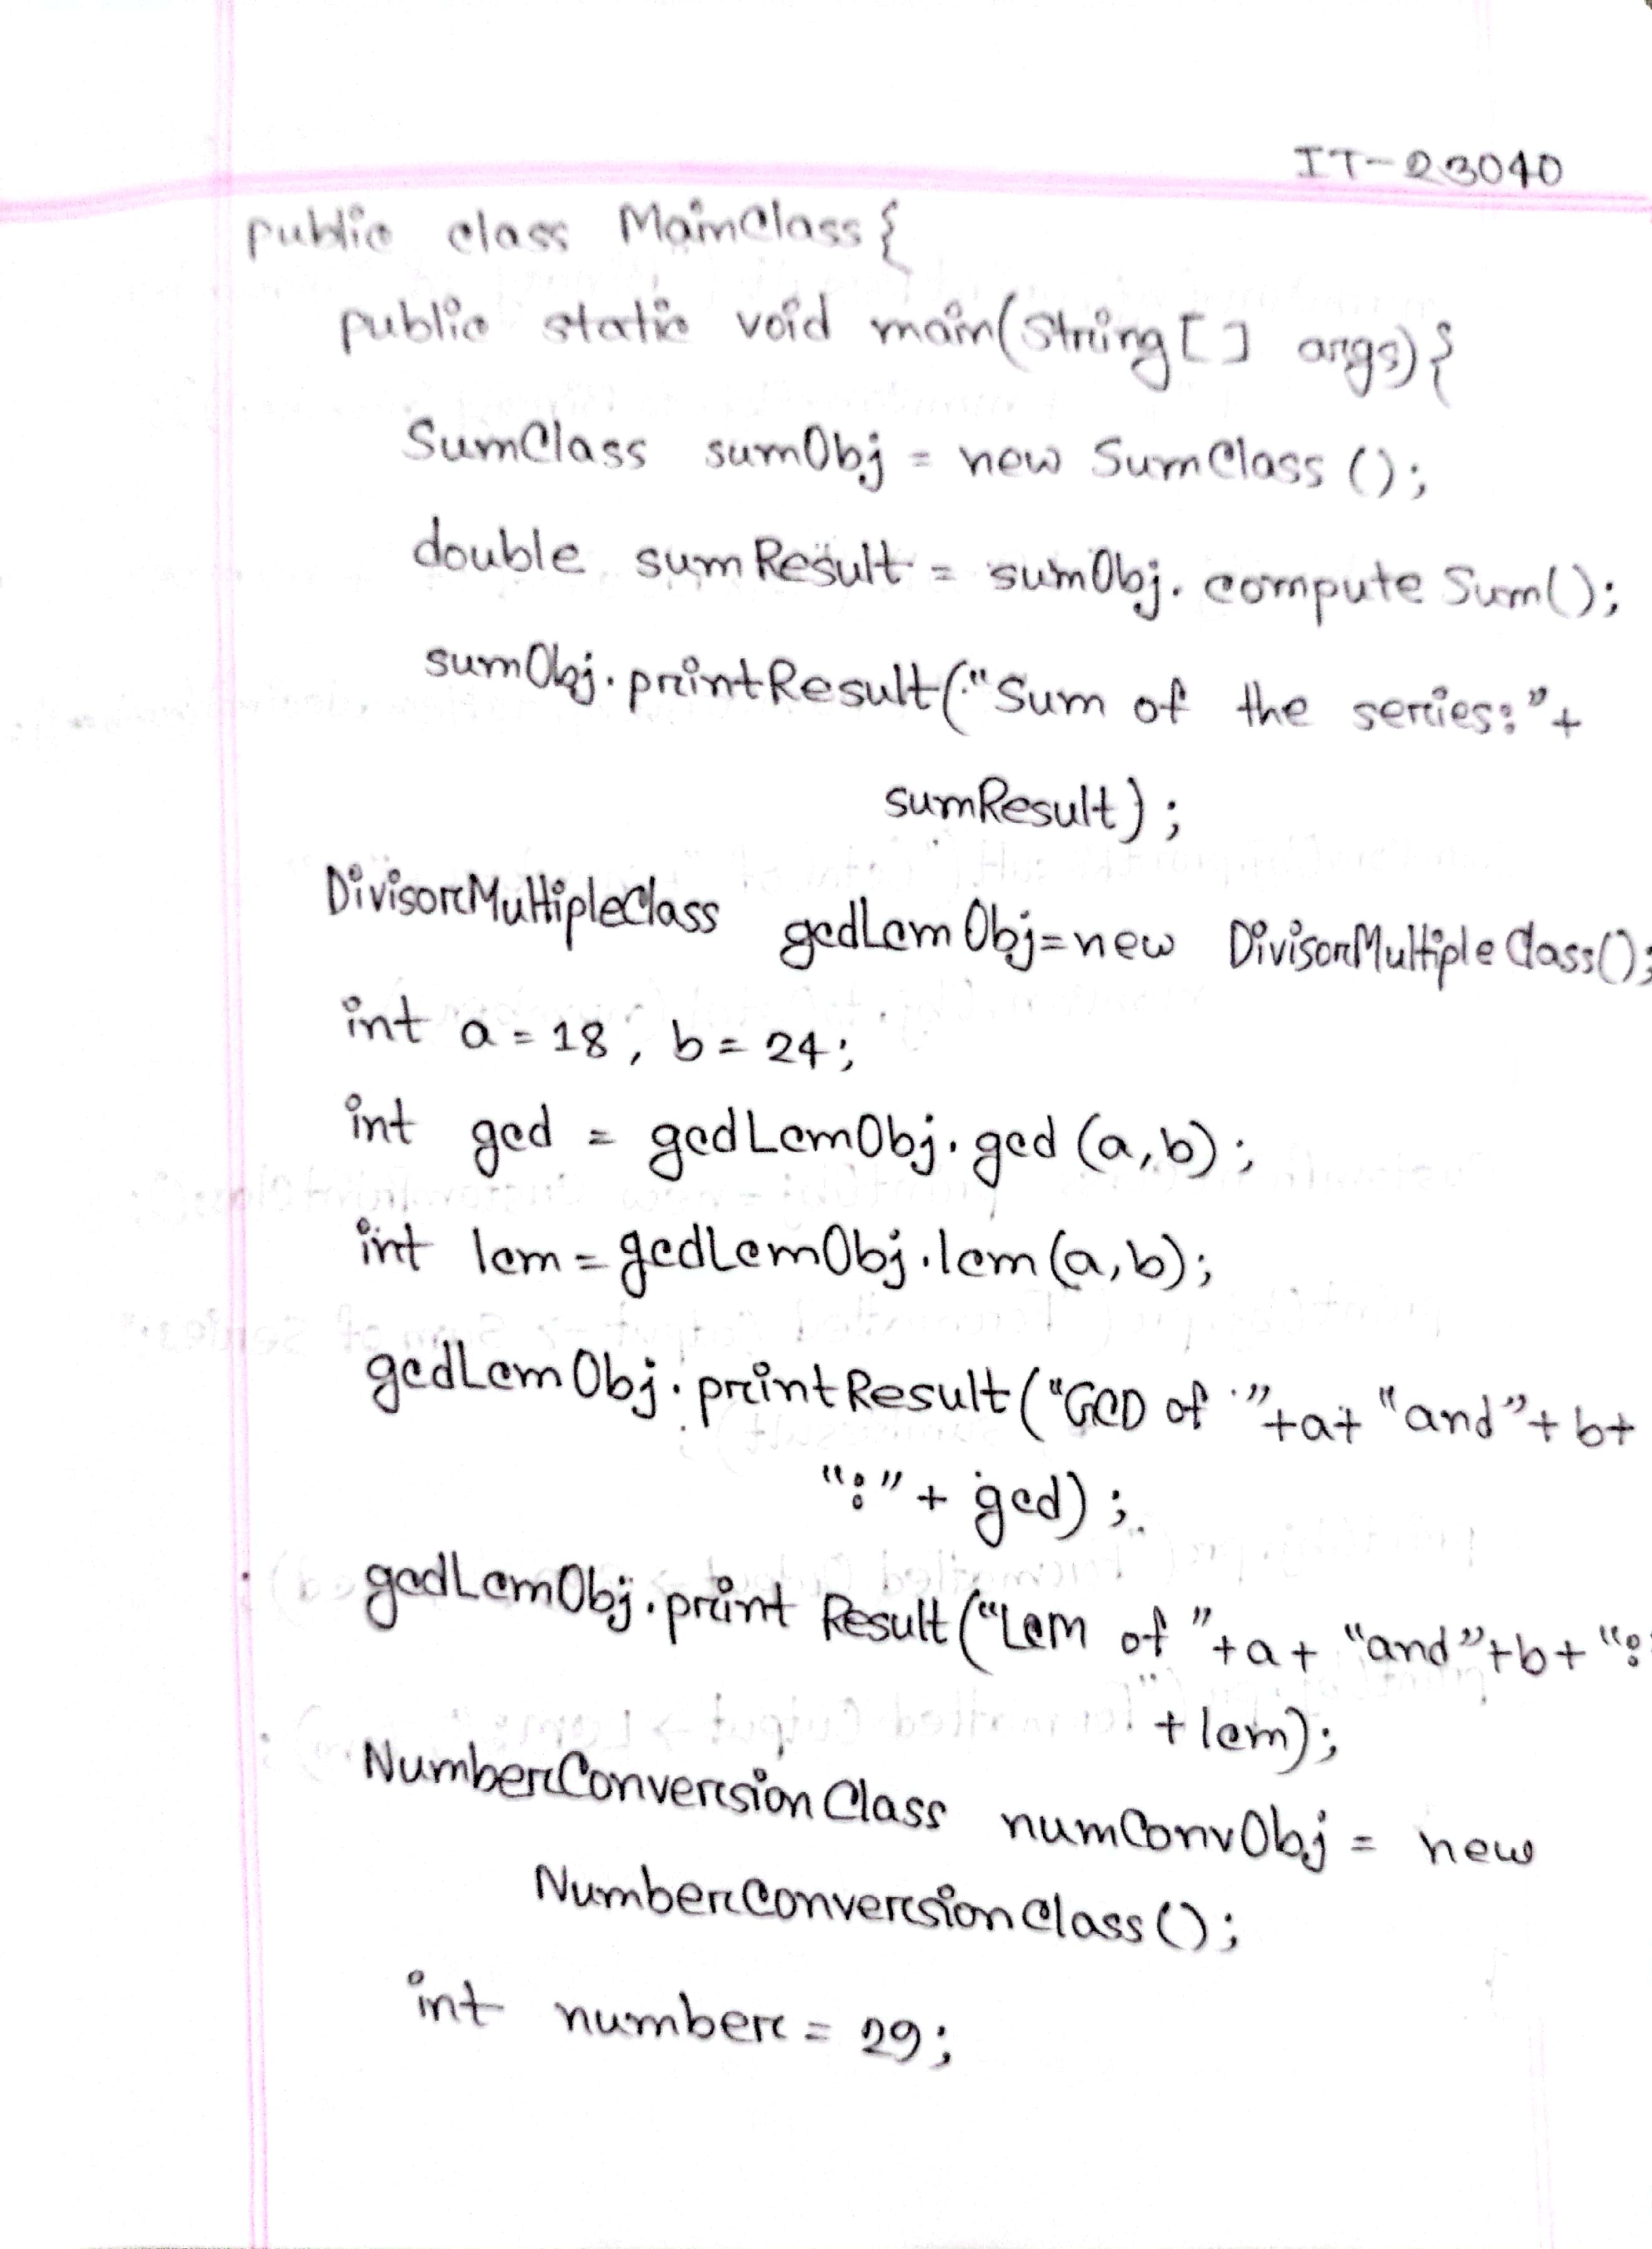 IT-23040
public class MainClass{
public static void main(String[] args){
SumClass sumObj = new SumClass();
double sumResult = sumObj.computeSum();
sumObj.printResult("Sum of the series:"+
sumResult);
DivisorMultipleClass gcdLcmObj=new DivisorMultipleClass();
int a = 18, b = 24;
int gcd = gcdLcmObj.gcd(a,b);
int lcm = gcdLcmObj.lcm(a,b);
gcdLcmObj.printResult("GCD of "+a+ "and"+b+
":"+ gcd);
gcdLcmObj.printResult("Lcm of "+a+ "and"+b+ ":
+lcm);
NumberConversionClass numConvObj = new
NumberConversionClass();
int number = 29;